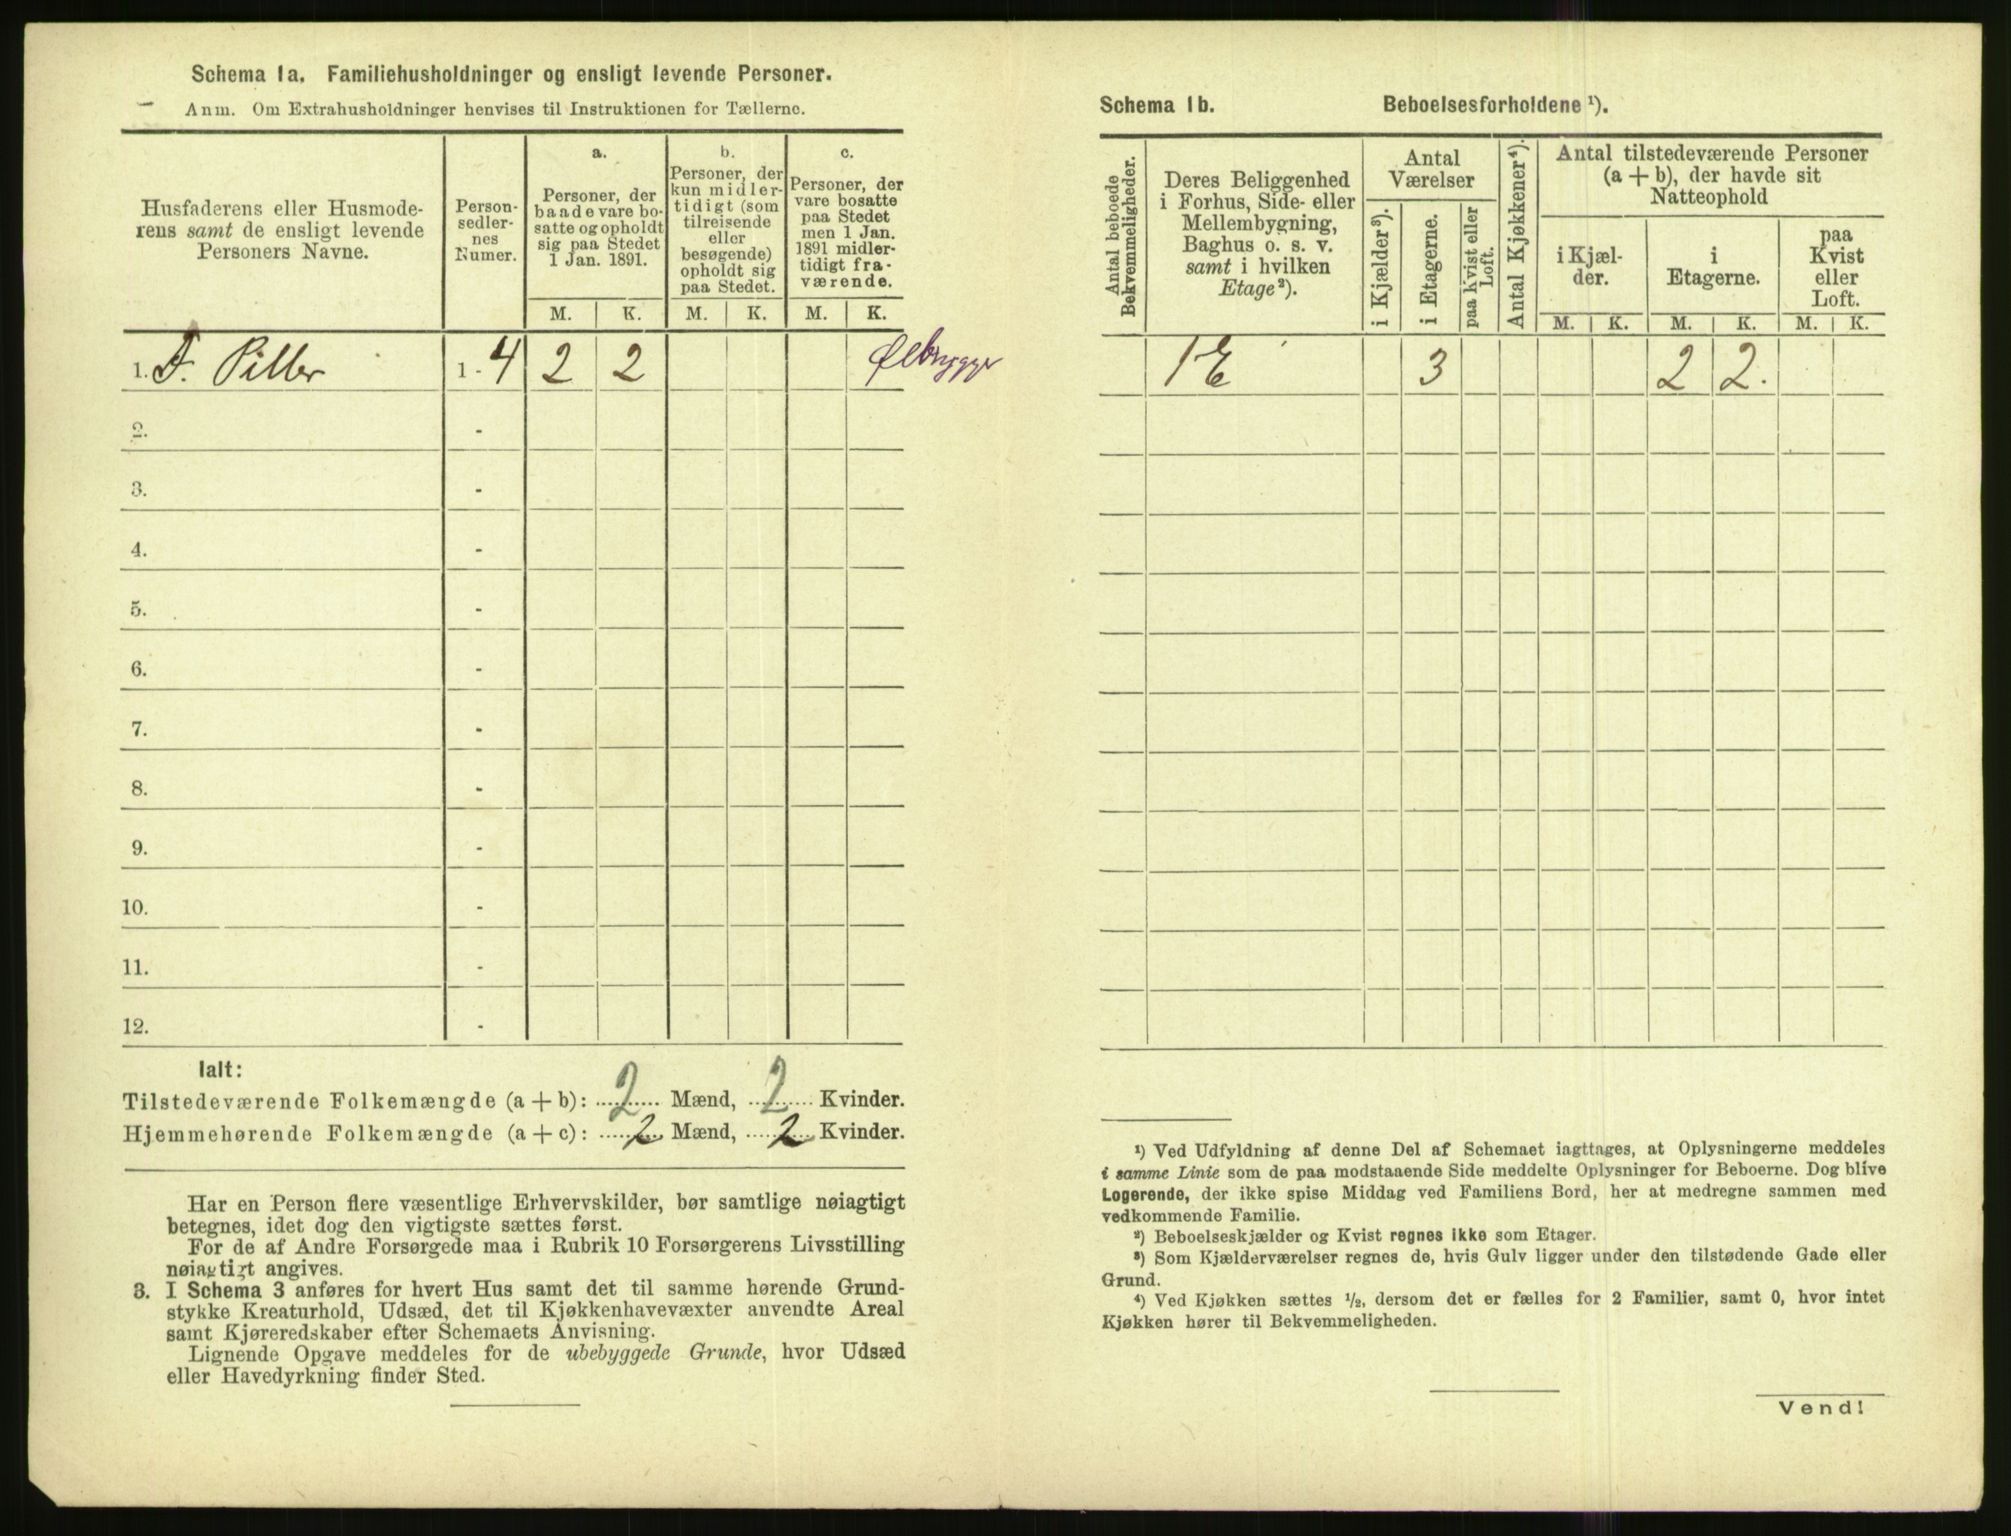 Schema 1a. Familiehusholdninger og ensligt levende Personer.
Anm. Om Extrahusholdninger henvises til Instruktionen for Tællerne.
Husfaderens eller Husmode-
rens samt de ensligt levende
Personers Navne.
Person-
sedler-
nes
Numer.
a.
Personer, der
baade vare bo-
satte og opholdt
sig paa Stedet
1 Jan. 1891.
b.
Personer, der
kun midler-
tidigt (som
tilreisende
eller
besøgende)
opholdt sig
paa Stedet.
c.
Personer, der
vare bosatte
paa Stedet
men 1 Jan.
1891 midler-
tidigt fra-
værende.
M. K. M. K. M. K.
1. F. Piller 1 - 4 2 2 Ølbrygger
2. -
3. -
4. -
5. -
6. -
7. -
8. -
9. -
10. -
11. -
12. -
Ialt:
Tilstedeværende Folkemængde (a + b): 2 Mænd, 2 Kvinder.
Hjemmehørende Folkemængde (a + c): 2 Mænd, 2 Kvinder.
Har en Person flere væsentlige Erhvervskilder, bør samtlige nøiagtigt
betegnes, idet dog den vigtigste sættes først.
For de af Andre Forsørgede maa i Rubrik 10 Forsørgerens Livsstilling
nøiagtigt angives.
3. I Schema 3 anføres for hvert Hus samt det til samme hørende Grund-
stykke Kreaturhold, Udsæd, det til Kjøkkenhavevæxter anvendte Areal
samt Kjøreredskaber efter Schemaets Anvisning.
Lignende Opgave meddeles for de ubebyggede Grunde, hvor Udsæd
eller Havedyrkning finder Sted.
Schema 1b. Beboelsesforholdene ¹).
Antal beboede
Bekvemmeligheder.
Deres Beliggenhed
i Forhus, Side- eller
Mellembygning,
Baghus o. s. v.
samt i hvilken
Etage²).
Antal
Værelser
i Kjælder³).
i Etagerne.
paa Kvist eller
Loft.
Antal Kjøkkener⁴).
Antal tilstedeværende Personer
(a + b), der havde sit
Natteophold
i Kjæl-
der.
i
Etagerne.
paa
Kvist
eller
Loft.
M. K. M. K. M. K.
1 E 3 2 2.
¹) Ved Udfyldning af denne Del af Schemaet iagttages, at Oplysningerne meddeles
i samme Linie som de paa modstaaende Side meddelte Oplysninger for Beboerne. Dog blive
Logerende, der ikke spise Middag ved Familiens Bord, her at medregne sammen med
vedkommende Familie.
²) Beboelseskjælder og Kvist regnes ikke som Etager.
³) Som Kjælderværelser regnes de, hvis Gulv ligger under den tilstødende Gade eller
Grund.
⁴) Ved Kjøkken sættes ½, dersom det er fælles for 2 Familier, samt 0, hvor intet
Kjøkken hører til Bekvemmeligheden.
Vend!